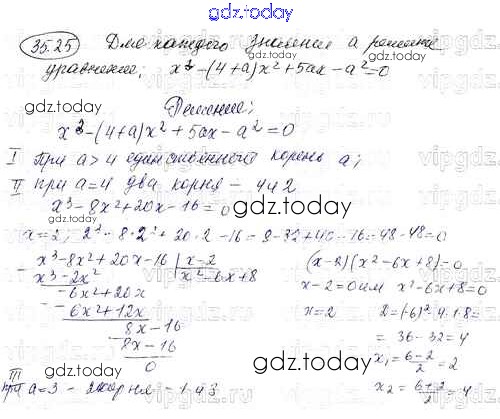 gdz.today
35.25 Для каждого значения a решите
уравнение; x³-(4+a)x²+5ax-a²=0
gdz.today
Решение;
x³-(4+a)x²+5ax-a²=0
gdz.today
I При a>4 единственный корень a;
II при a=4 два корня - 4 и 2
x³-8x²+20x-16=0
gdz.today
x=2; 2³-8·2²+20·2-16=8-32+40-16=48-48=0
x³-8x²+20x-16 | x-2
x³-2x² | x²-6x+8
-6x²+20x
-6x²+12x
8x-16
8x-16
0
(x-2)(x²-6x+8)=0
x-2=0 или x²-6x+8=0
x=2 D=(-6)²-4·1·8=
= 36-32=4
x₁=(6-2)/2=2
x₂=(6+2)/2=4
gdz.today
gdz.today
III при a=3 - 2 корня - 1 и 3
gdz.today
vipgdz